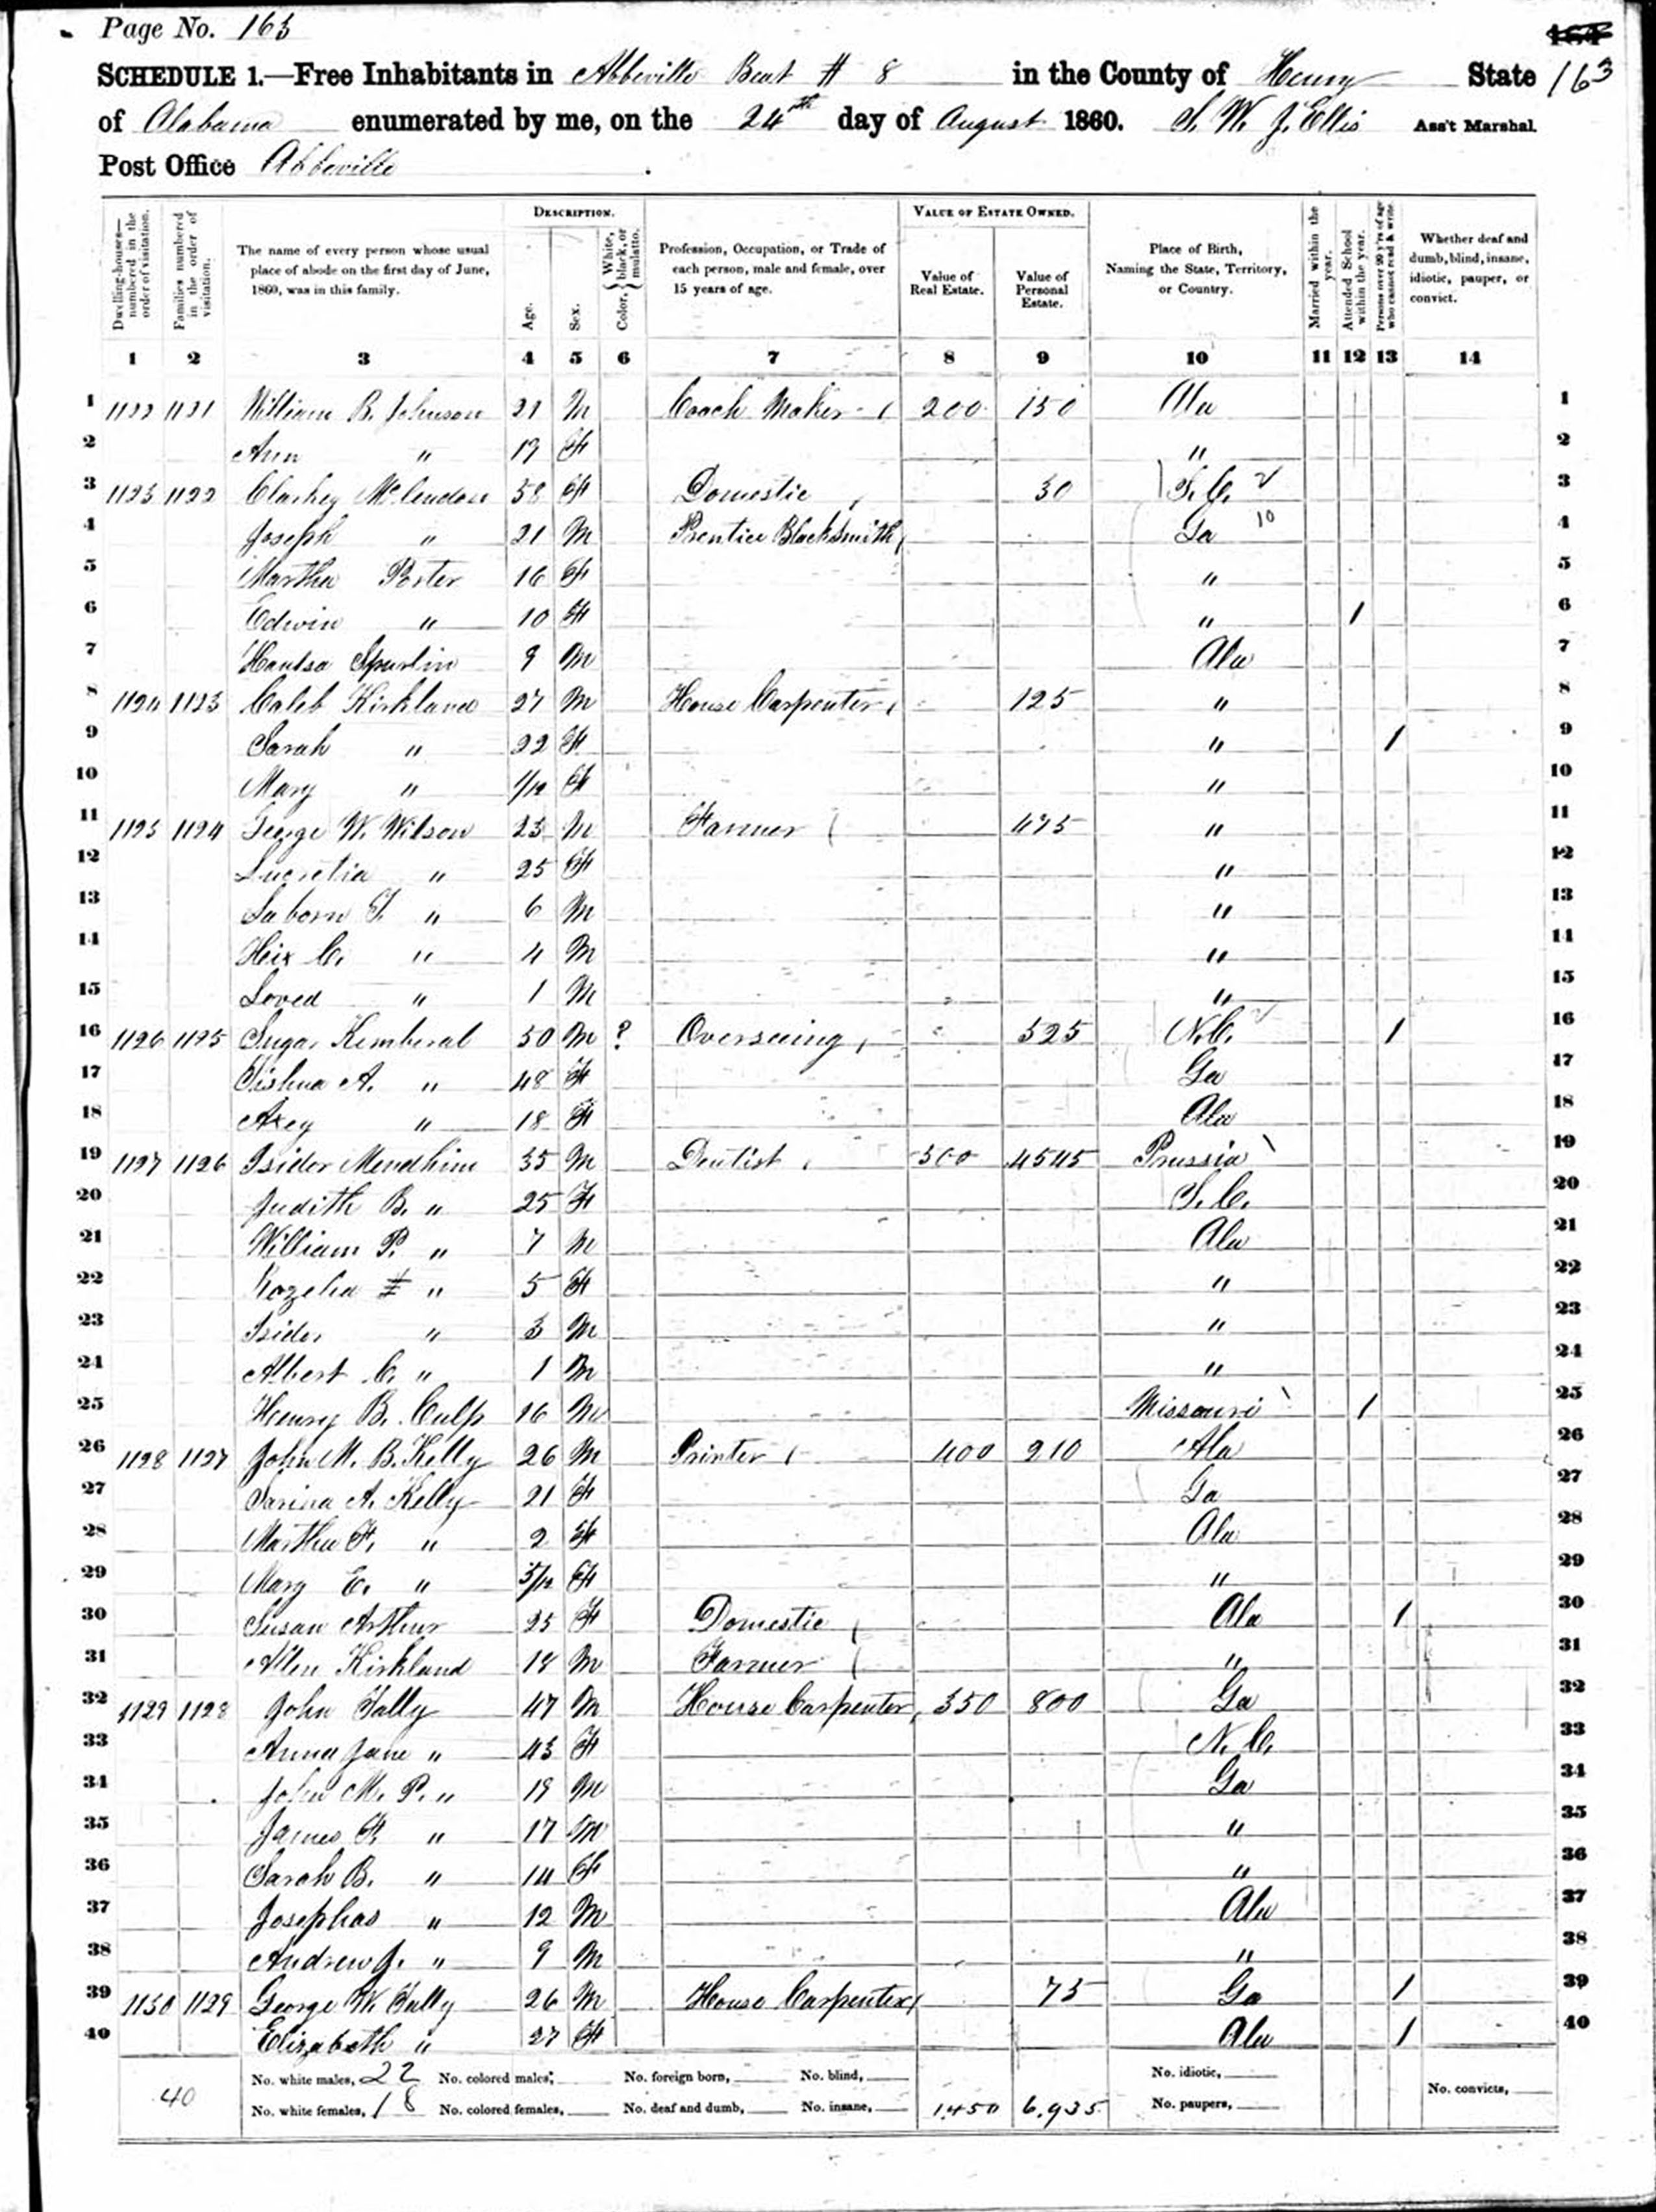 Page No. 163
164
SCHEDULE 1.—Free Inhabitants in Abbeville Beat # 8 in the County of Henry State 163
of Alabama enumerated by me, on the 24th day of August 1860. S. W. J. Ellis Ass't Marshal.
Post Office Abbeville
Dwelling-houses—numbered in the order of visitation. Families numbered in the order of visitation. The name of every person whose usual place of abode on the first day of June, 1860, was in this family. DESCRIPTION. Age. Sex. Color, { White, black, or mulatto. Profession, Occupation, or Trade of each person, male and female, over 15 years of age. VALUE OF ESTATE OWNED. Value of Real Estate. Value of Personal Estate. Place of Birth, Naming the State, Territory, or Country. Married within the year. Attended School within the year. Persons over 20 y'rs of age who cannot read & write. Whether deaf and dumb, blind, insane, idiotic, pauper, or convict.
1 2 3 4 5 6 7 8 9 10 11 12 13 14
1 1122 1121 William B. Johnson 21 M Coach Maker 200 150 Ala 1
2 Ann " 17 F " 2
3 1123 1122 Clarkey McLendon 58 F Domestic 30 S.C. 3
4 Joseph " 21 M Prentice Blacksmith Ga 10 4
5 Martha Porter 16 F " 5
6 Edwin " 10 F " 1 6
7 Spurlin 9 M Ala 7
8 1124 1123 Caleb Kirkland 27 M House Carpenter 125 " 8
9 Sarah " 22 F " 1 9
10 Mary " 1/12 F " 10
11 1125 1124 George W. Wilson 23 M Farmer 475 " 11
12 Lucretia " 25 F " 12
13 Saborn " 6 M " 13
14 Heix C. " 4 M " 14
15 Loved " 1 M " 15
16 1126 1125 Sugar Kemberal 50 M ? Overseeing 525 N.C. 1 16
17 Tishua A. " 48 F Ga 17
18 Axey " 18 F Ala 18
19 1127 1126 Isidor Mendhim 35 M Dentist 300 4545 Prussia 19
20 Judith B. " 25 F S.C. 20
21 William P. " 7 M Ala 21
22 Rozelia " 5 F " 22
23 Isidor " 3 M " 23
24 Albert C. " 1 M " 24
25 Henry B. Culp 16 M Missouri 1 25
26 1128 1127 John M. B. Kelly 26 M Printer 400 210 Ala 26
27 Sarina A. Kelly 21 F Ga 27
28 Martha F. " 2 F Ala 28
29 Mary E. " 5/12 F " 29
30 Susan Arthur 25 F Domestic Ala 1 30
31 Allen Kirkland 18 M Farmer " 31
32 1129 1128 John Tally 47 M House Carpenter 350 800 Ga 32
33 Anna Jane " 43 F N.C. 33
34 John M. P. " 19 M Ga 34
35 James F. " 17 M " 35
36 Sarah B. " 14 F " 36
37 Josephas " 12 M Ala 37
38 Andrew J. " 9 M " 38
39 1130 1129 George W. Tally 26 M House Carpenter 75 Ga 1 39
40 Elizabeth " 27 F Ala 1 40
40 No. white males, 22 No. colored males, No. foreign born, No. blind, No. idiotic, No. convicts,
No. white females, 18 No. colored females, No. deaf and dumb, No. insane, 1450 6,935 No. paupers,